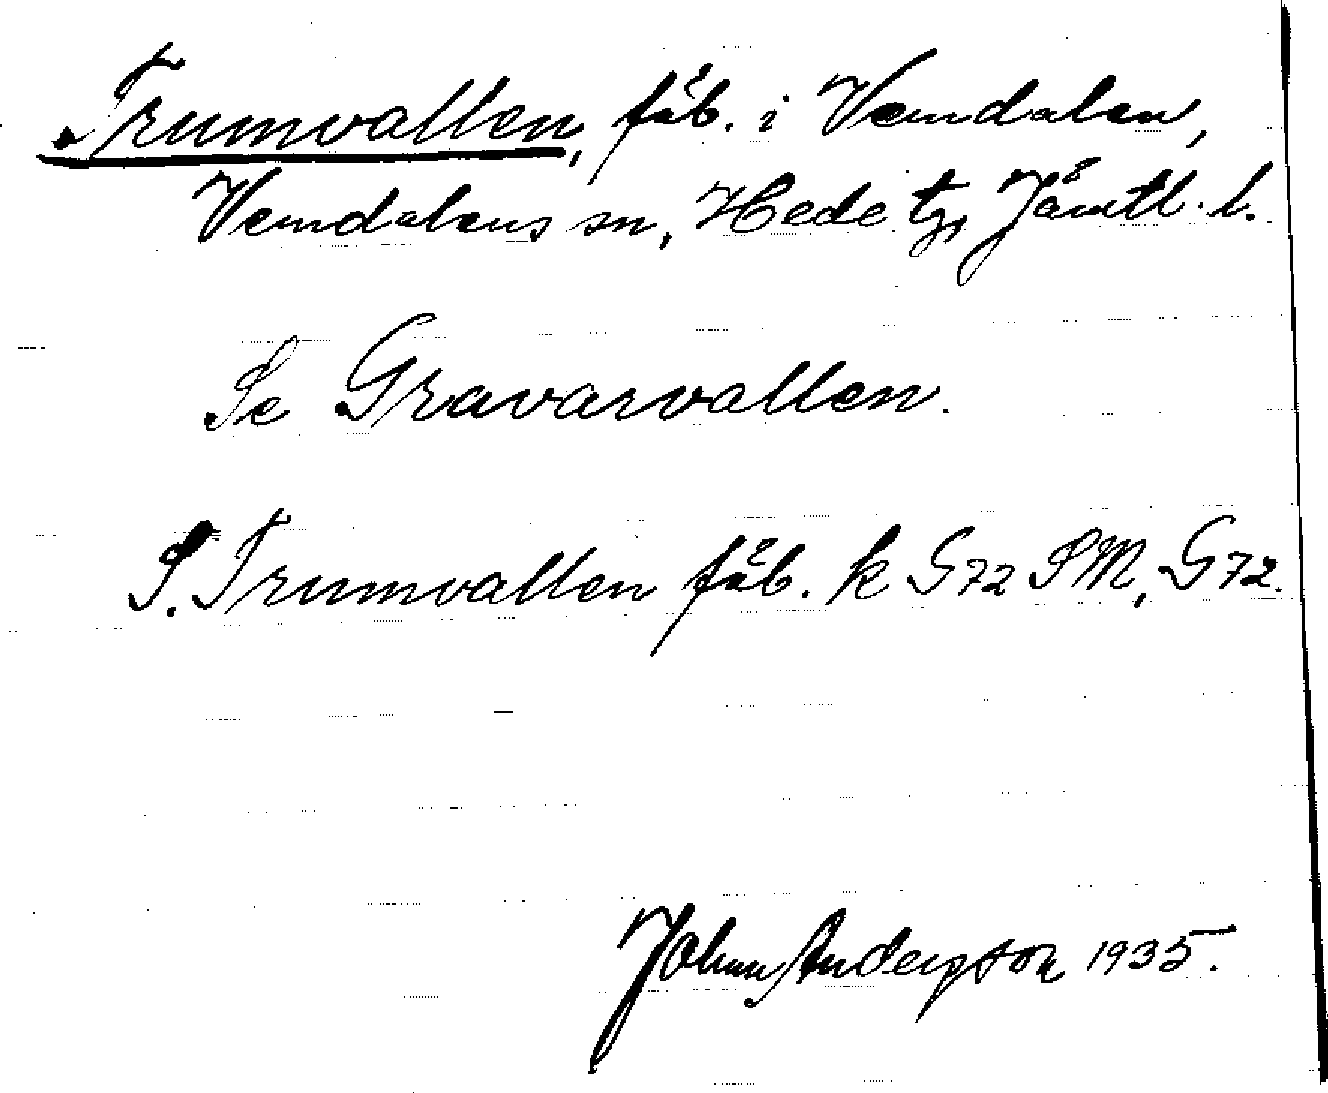 Trumvallen, fäb. i Vemdalen,
Vemdalens sn, Hede tg, Jämtl. l.
Se Gravarvallen.
S. Trumvallen fäb. k G72 SM, G72.
Johan Andersson 1935.